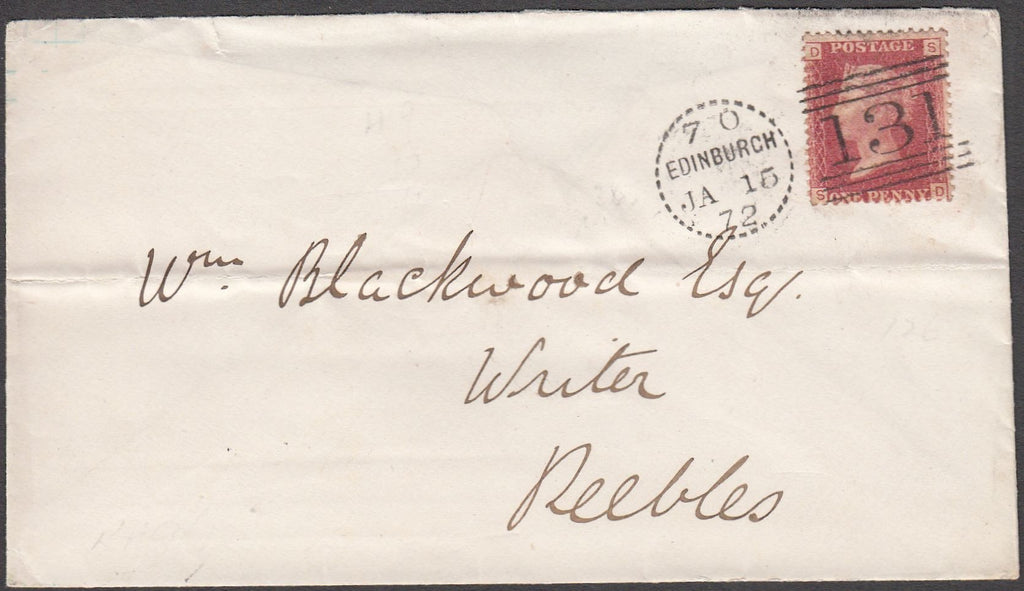 D POSTAGE S
131
S ONE PENNY D
7 O
EDINBURCH
JA 15
72
Wm. Blackwood Esq.
Writer
Peebles